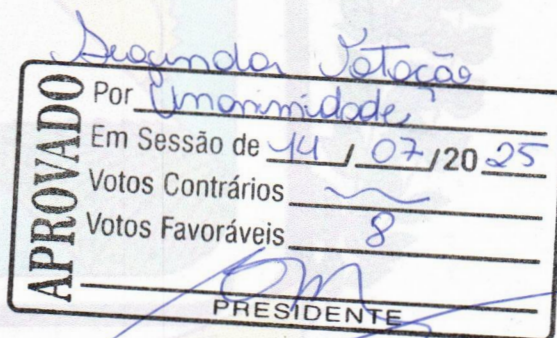 Segunda Votação
APROVADO
Por Unanimidade
Em Sessão de 14 / 07 /20 25
Votos Contrários
Votos Favoráveis 8
PRESIDENTE